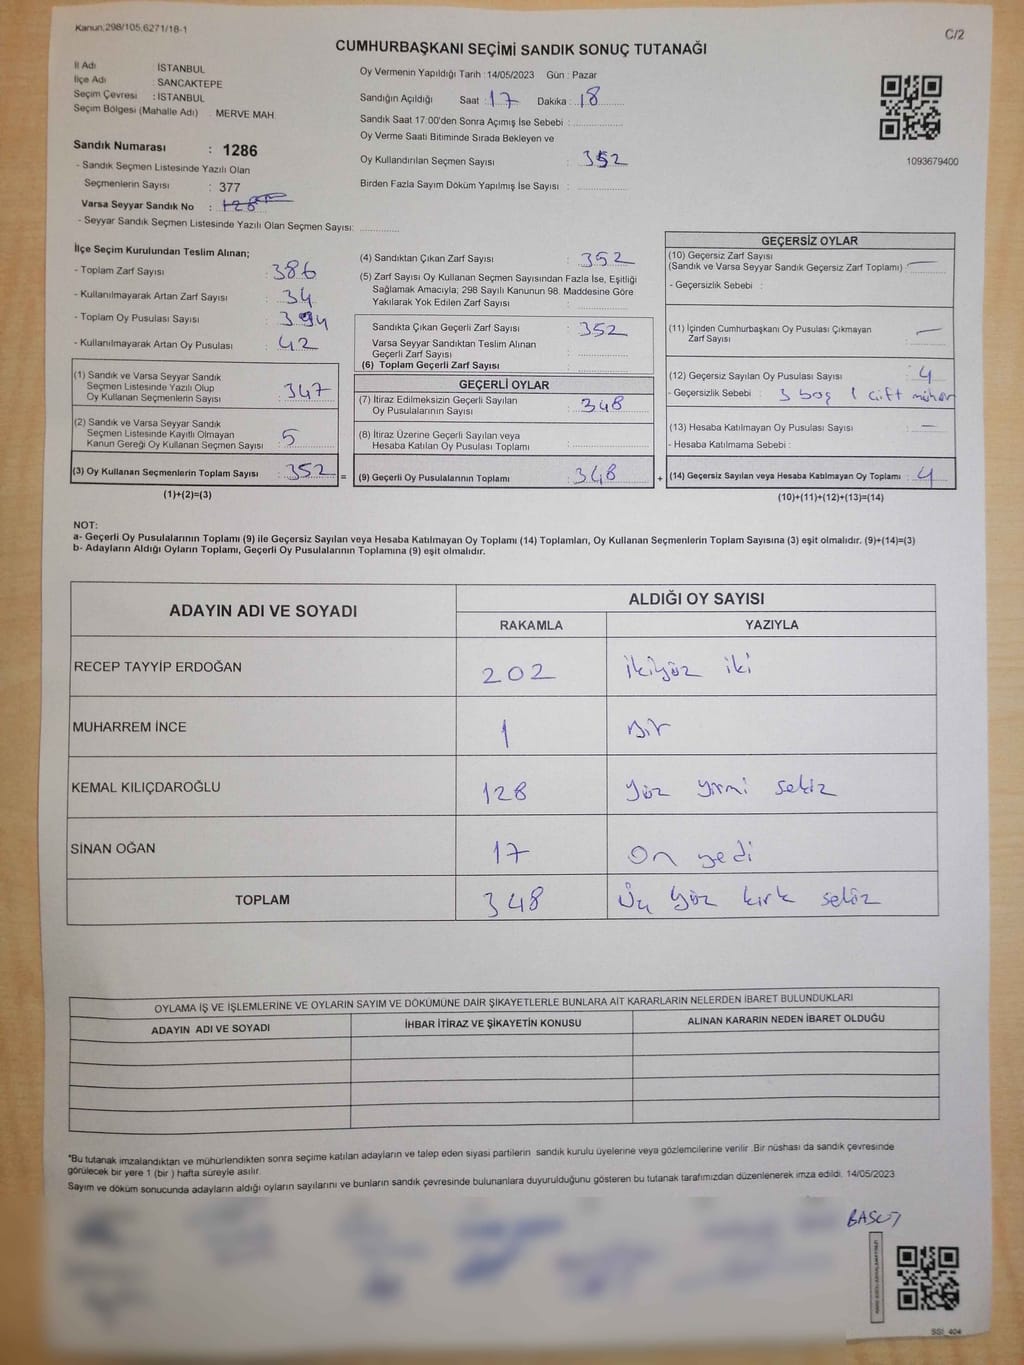 Kanun,298/105,6271/18-1
C/2
CUMHURBAŞKANI SEÇİMİ SANDIK SONUÇ TUTANAĞI
İl Adı İSTANBUL
İlçe Adı : SANCAKTEPE
Seçim Çevresi : İSTANBUL
Seçim Bölgesi (Mahalle Adı) : MERVE MAH.
Sandık Numarası : 1286
- Sandık Seçmen Listesinde Yazılı Olan
Seçmenlerin Sayısı : 377
Varsa Seyyar Sandık No :
- Seyyar Sandık Seçmen Listesinde Yazılı Olan Seçmen Sayısı:
Oy Vermenin Yapıldığı Tarih :14/05/2023 Gün : Pazar
Sandığın Açıldığı Saat : 17 Dakika : 18
Sandık Saat 17:00'den Sonra Açımış İse Sebebi :
Oy Verme Saati Bitiminde Sırada Bekleyen ve
Oy Kullandırılan Seçmen Sayısı : 352
Birden Fazla Sayım Döküm Yapılmış İse Sayısı :
1093679400
İlçe Seçim Kurulundan Teslim Alınan;
- Toplam Zarf Sayısı : 386
- Kullanılmayarak Artan Zarf Sayısı : 34
- Toplam Oy Pusulası Sayısı : 394
- Kullanılmayarak Artan Oy Pusulası : 42
(1) Sandık ve Varsa Seyyar Sandık
Seçmen Listesinde Yazılı Olup
Oy Kullanan Seçmenlerin Sayısı : 347
(2) Sandık ve Varsa Seyyar Sandık
Seçmen Listesinde Kayıtlı Olmayan
Kanun Gereği Oy Kullanan Seçmen Sayısı : 5
(3) Oy Kullanan Seçmenlerin Toplam Sayısı : 352 =
(1)+(2)=(3)
(4) Sandıktan Çıkan Zarf Sayısı : 352
(5) Zarf Sayısı Oy Kullanan Seçmen Sayısından Fazla İse, Eşitliği
Sağlamak Amacıyla; 298 Sayılı Kanunun 98. Maddesine Göre
Yakılarak Yok Edilen Zarf Sayısı :
Sandıkta Çıkan Geçerli Zarf Sayısı : 352
Varsa Seyyar Sandıktan Teslim Alınan
Geçerli Zarf Sayısı :
(6) Toplam Geçerli Zarf Sayısı :
GEÇERLİ OYLAR
(7) İtiraz Edilmeksizin Geçerli Sayılan
Oy Pusulalarının Sayısı : 348
(8) İtiraz Üzerine Geçerli Sayılan veya
Hesaba Katılan Oy Pusulası Toplamı :
(9) Geçerli Oy Pusulalarının Toplamı : 348 +
GEÇERSİZ OYLAR
(10) Geçersiz Zarf Sayısı
(Sandık ve Varsa Seyyar Sandık Geçersiz Zarf Toplamı) : —
- Geçersizlik Sebebi :
(11) İçinden Cumhurbaşkanı Oy Pusulası Çıkmayan
Zarf Sayısı : —
(12) Geçersiz Sayılan Oy Pusulası Sayısı : 4
- Geçersizlik Sebebi : 3 boş 1 çift mühür
(13) Hesaba Katılmayan Oy Pusulası Sayısı : —
- Hesaba Katılmama Sebebi :
(14) Geçersiz Sayılan veya Hesaba Katılmayan Oy Toplamı : 4
(10)+(11)+(12)+(13)=(14)
NOT:
a- Geçerli Oy Pusulalarının Toplamı (9) ile Geçersiz Sayılan veya Hesaba Katılmayan Oy Toplamı (14) Toplamları, Oy Kullanan Seçmenlerin Toplam Sayısına (3) eşit olmalıdır. (9)+(14)=(3)
b- Adayların Aldığı Oyların Toplamı, Geçerli Oy Pusulalarının Toplamına (9) eşit olmalıdır.
ADAYIN ADI VE SOYADI
ALDIĞI OY SAYISI
RAKAMLA YAZIYLA
RECEP TAYYİP ERDOĞAN 202 ikiyüz iki
MUHARREM İNCE 1 Bir
KEMAL KILIÇDAROĞLU 128 yüz yirmi sekiz
SİNAN OĞAN 17 On yedi
TOPLAM 348 Üç yüz kırk sekiz
OYLAMA İŞ VE İŞLEMLERİNE VE OYLARIN SAYIM VE DÖKÜMÜNE DAİR ŞİKAYETLERLE BUNLARA AİT KARARLARIN NELERDEN İBARET BULUNDUKLARI
ADAYIN ADI VE SOYADI İHBAR İTİRAZ VE ŞİKAYETİN KONUSU ALINAN KARARIN NEDEN İBARET OLDUĞU
*Bu tutanak imzalandıktan ve mühürlendikten sonra seçime katılan adayların ve talep eden siyasi partilerin sandık kurulu üyelerine veya gözlemcilerine verilir. Bir nüshası da sandık çevresinde
görülecek bir yere 1 (bir ) hafta süreyle asılır.
Sayım ve döküm sonucunda adayların aldığı oyların sayılarını ve bunların sandık çevresinde bulunanlara duyurulduğunu gösteren bu tutanak tarafımızdan düzenlenerek imza edildi. 14/05/2023
SSİ_404